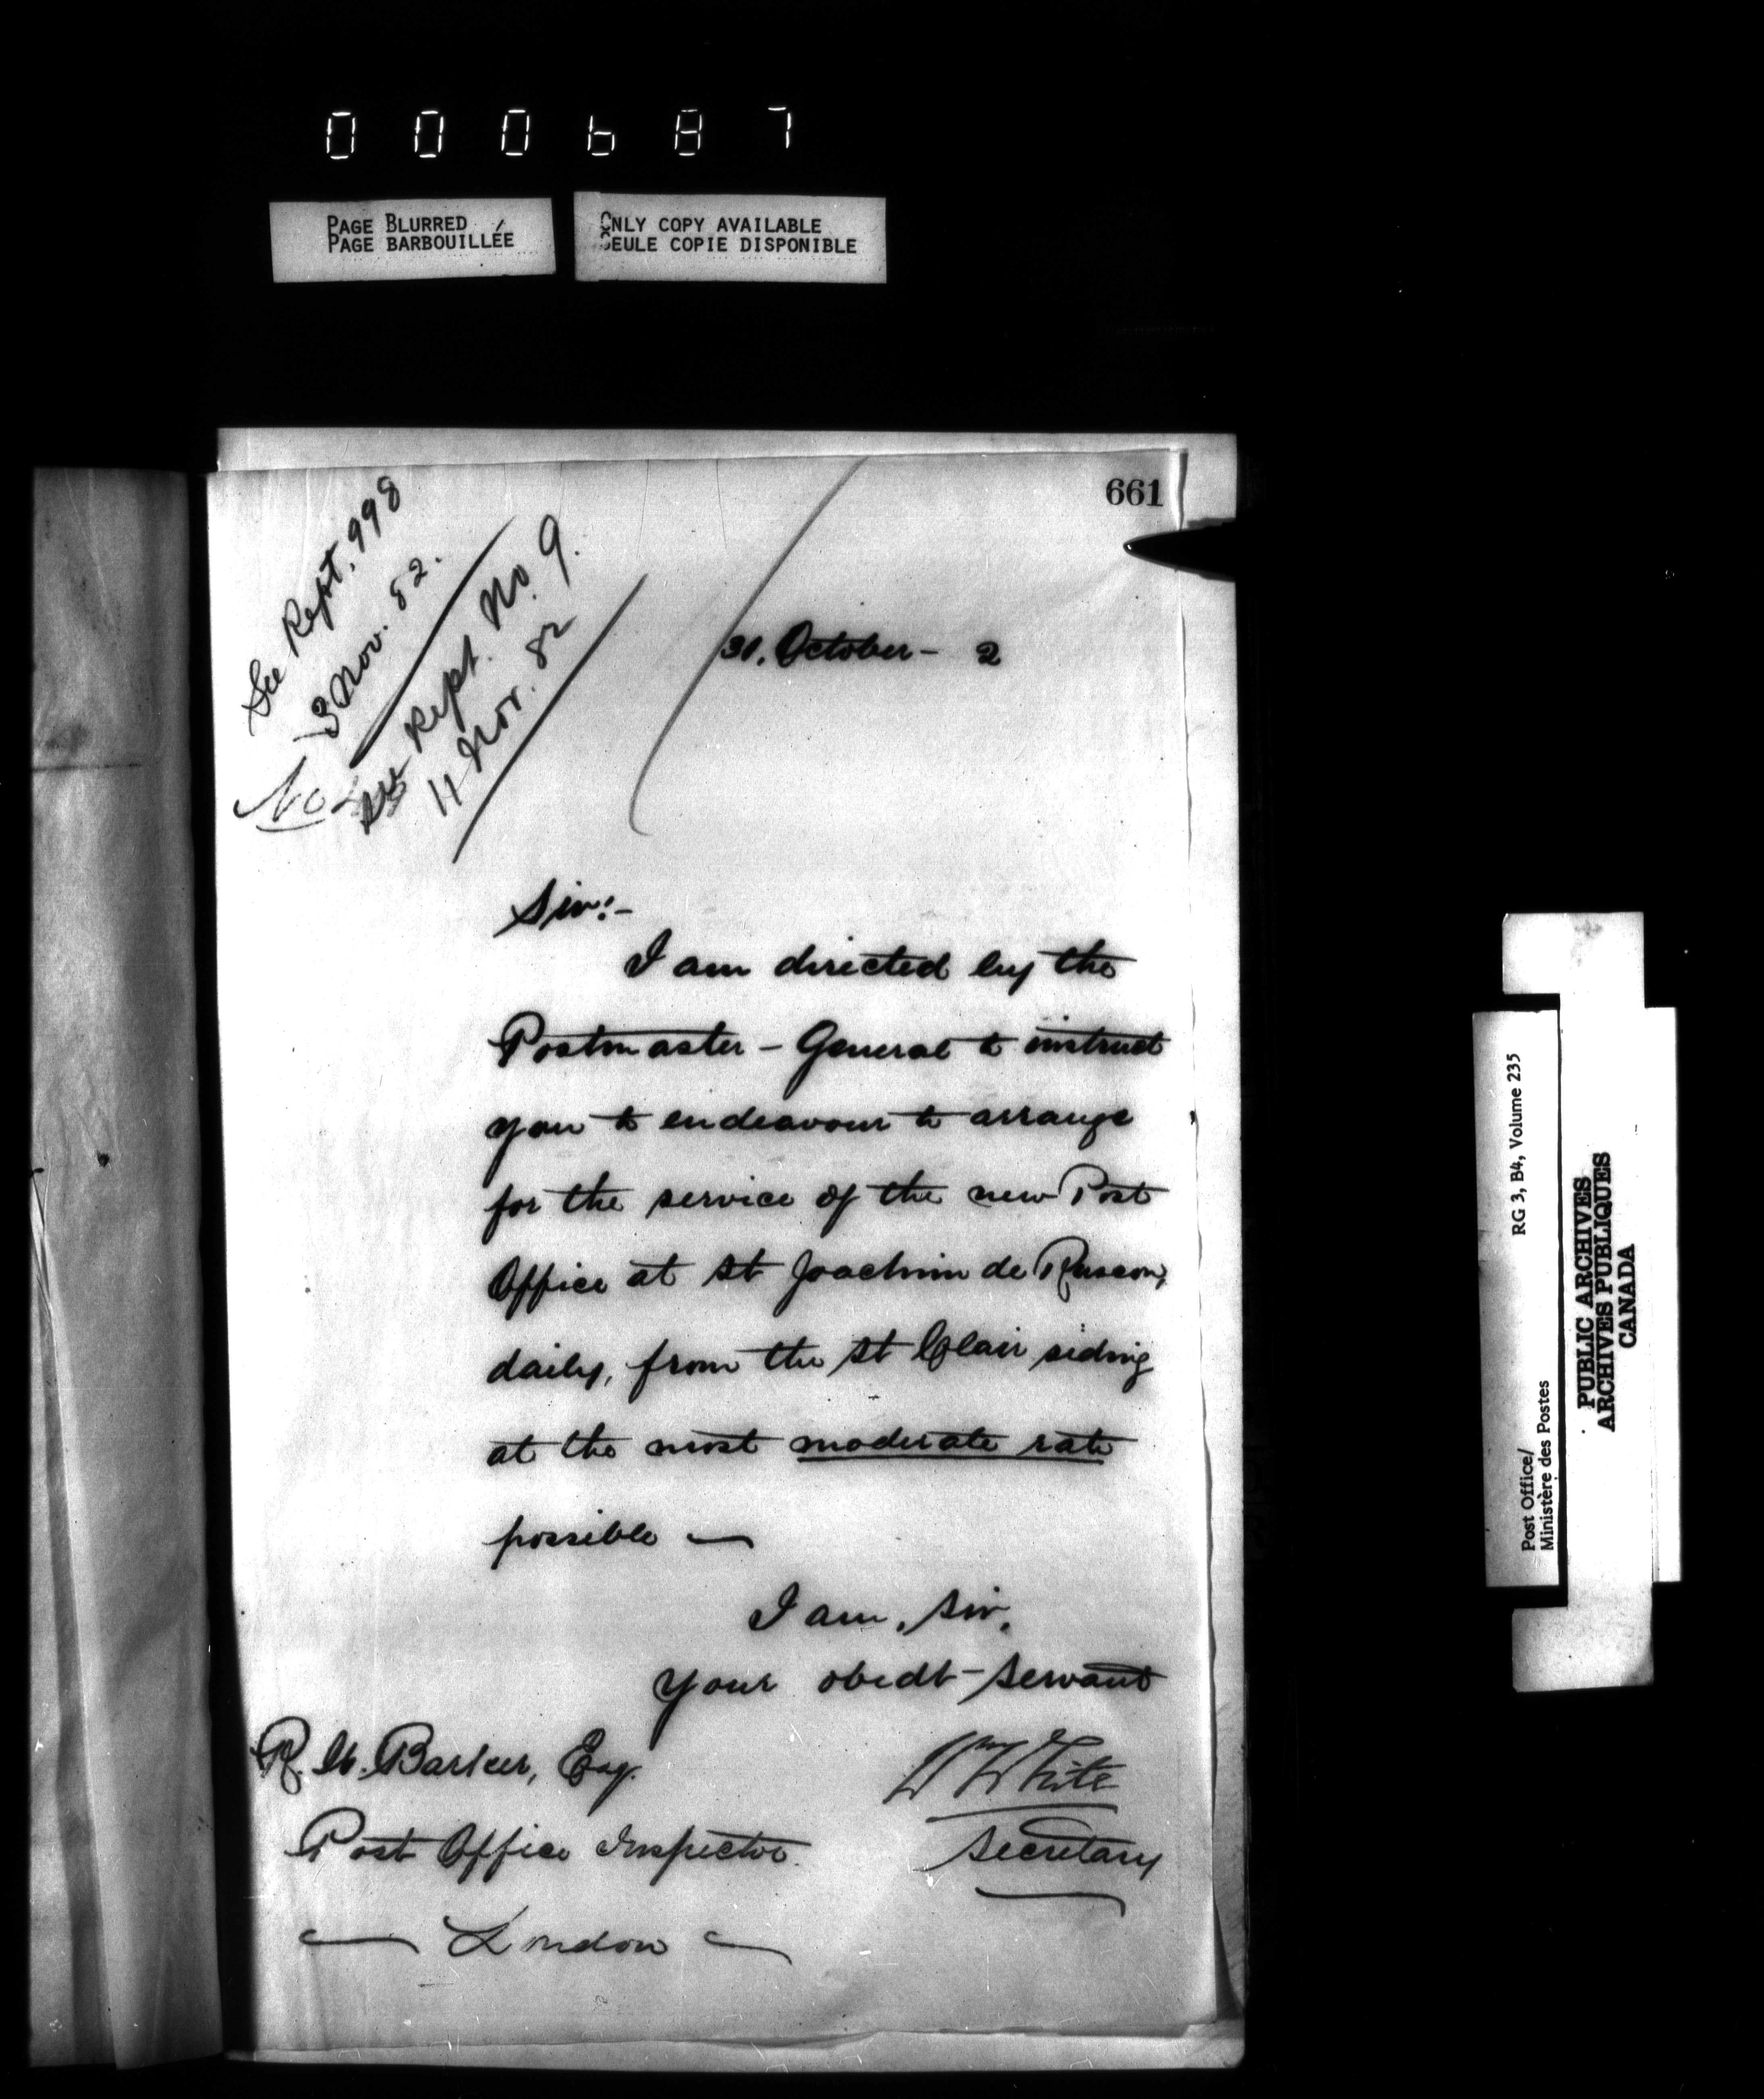 000687
PAGE BLURRED
PAGE BARBOUILLÉE
ONLY COPY AVAILABLE
SEULE COPIE DISPONIBLE
661
See Rept. 998
3 Nov. 82.
No
See Rept. No. 9.
11 Nov. 82
31. October - 2
Sir:-
I am directed by the
Postmaster - General to instruct
you to endeavour to arrange
for the service of the new Post
Office at St Joachim de Ruscom,
daily, from the St Clair siding
at the most moderate rate
possible —
I am, Sir,
Your obedt - Servant
Wm White
Secretary
R. W. Barker, Esq.
Post Office Inspector.
— London —
Post Office/
Ministère des Postes
RG 3, B4, Volume 235
PUBLIC ARCHIVES
ARCHIVES PUBLIQUES
CANADA